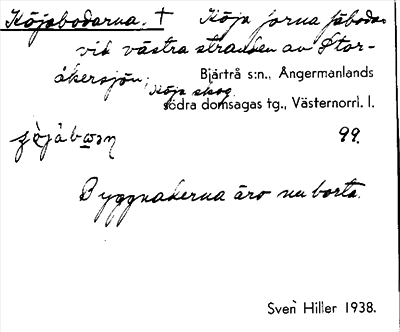 Köjabodarna. † Köja forna fäbodar
vid västra stranden av Stor-
åkersjön, Köja skog.
Bjärtrå s:n., Ångermanlands
södra domsagas tg., Västernorrl. l.
99.
Byggnaderna äro nu borta.
Sven Hiller 1938.